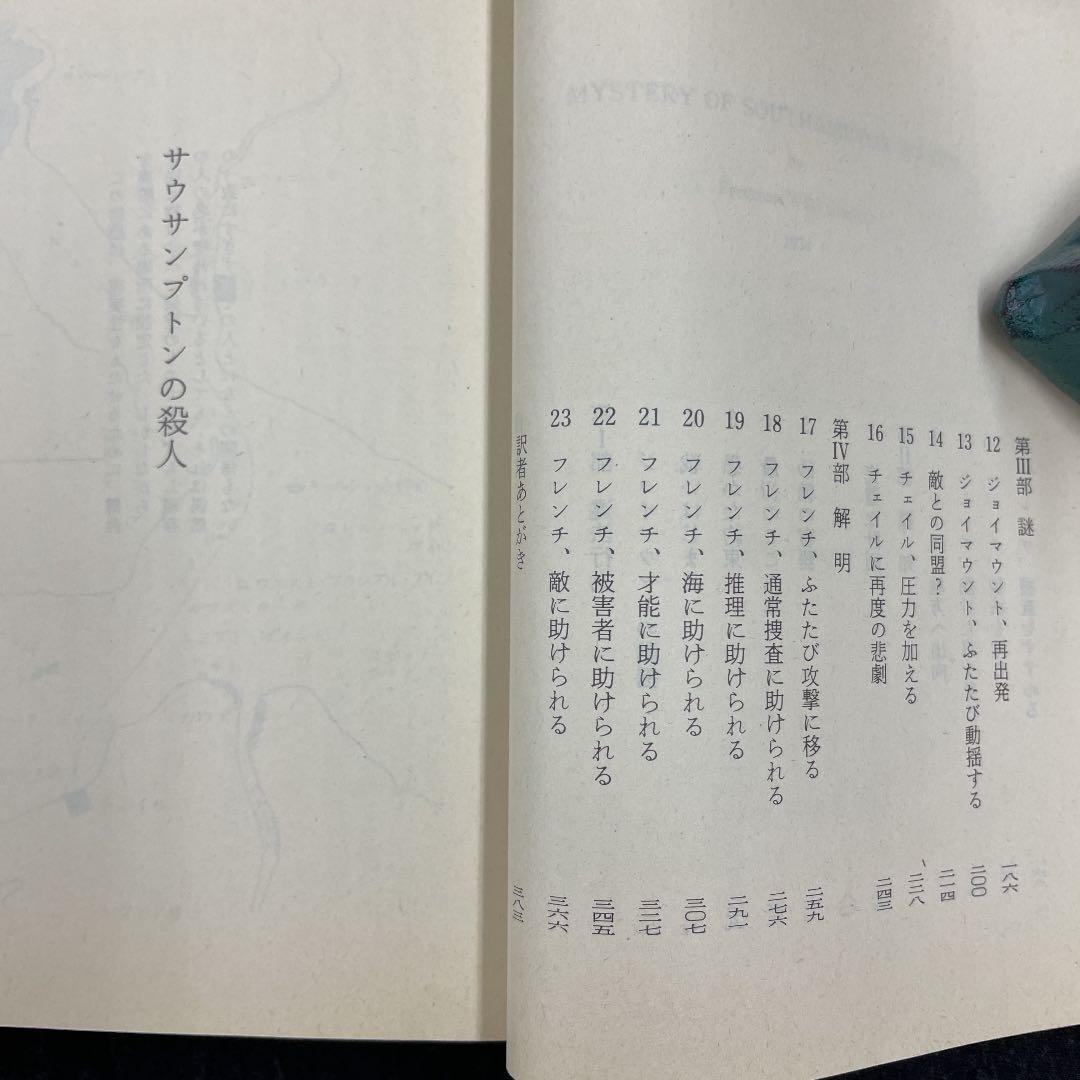 第Ⅲ部 謎
12 ジョイマウント、再出発 一八六
13 ジョイマウント、ふたたび動揺する 二〇〇
14 敵との同盟? 二一四
15 チェイル、圧力を加える 二二八
16 チェイルに再度の悲劇 二四三
第Ⅳ部 解明
17 フレンチ、ふたたび攻撃に移る 二五九
18 フレンチ、通常捜査に助けられる 二七六
19 フレンチ、推理に助けられる 二九一
20 フレンチ、海に助けられる 三〇七
21 フレンチ、才能に助けられる 三二七
22 フレンチ、被害者に助けられる 三四五
23 フレンチ、敵に助けられる 三六六
訳者あとがき 三八三
サウサンプトンの殺人